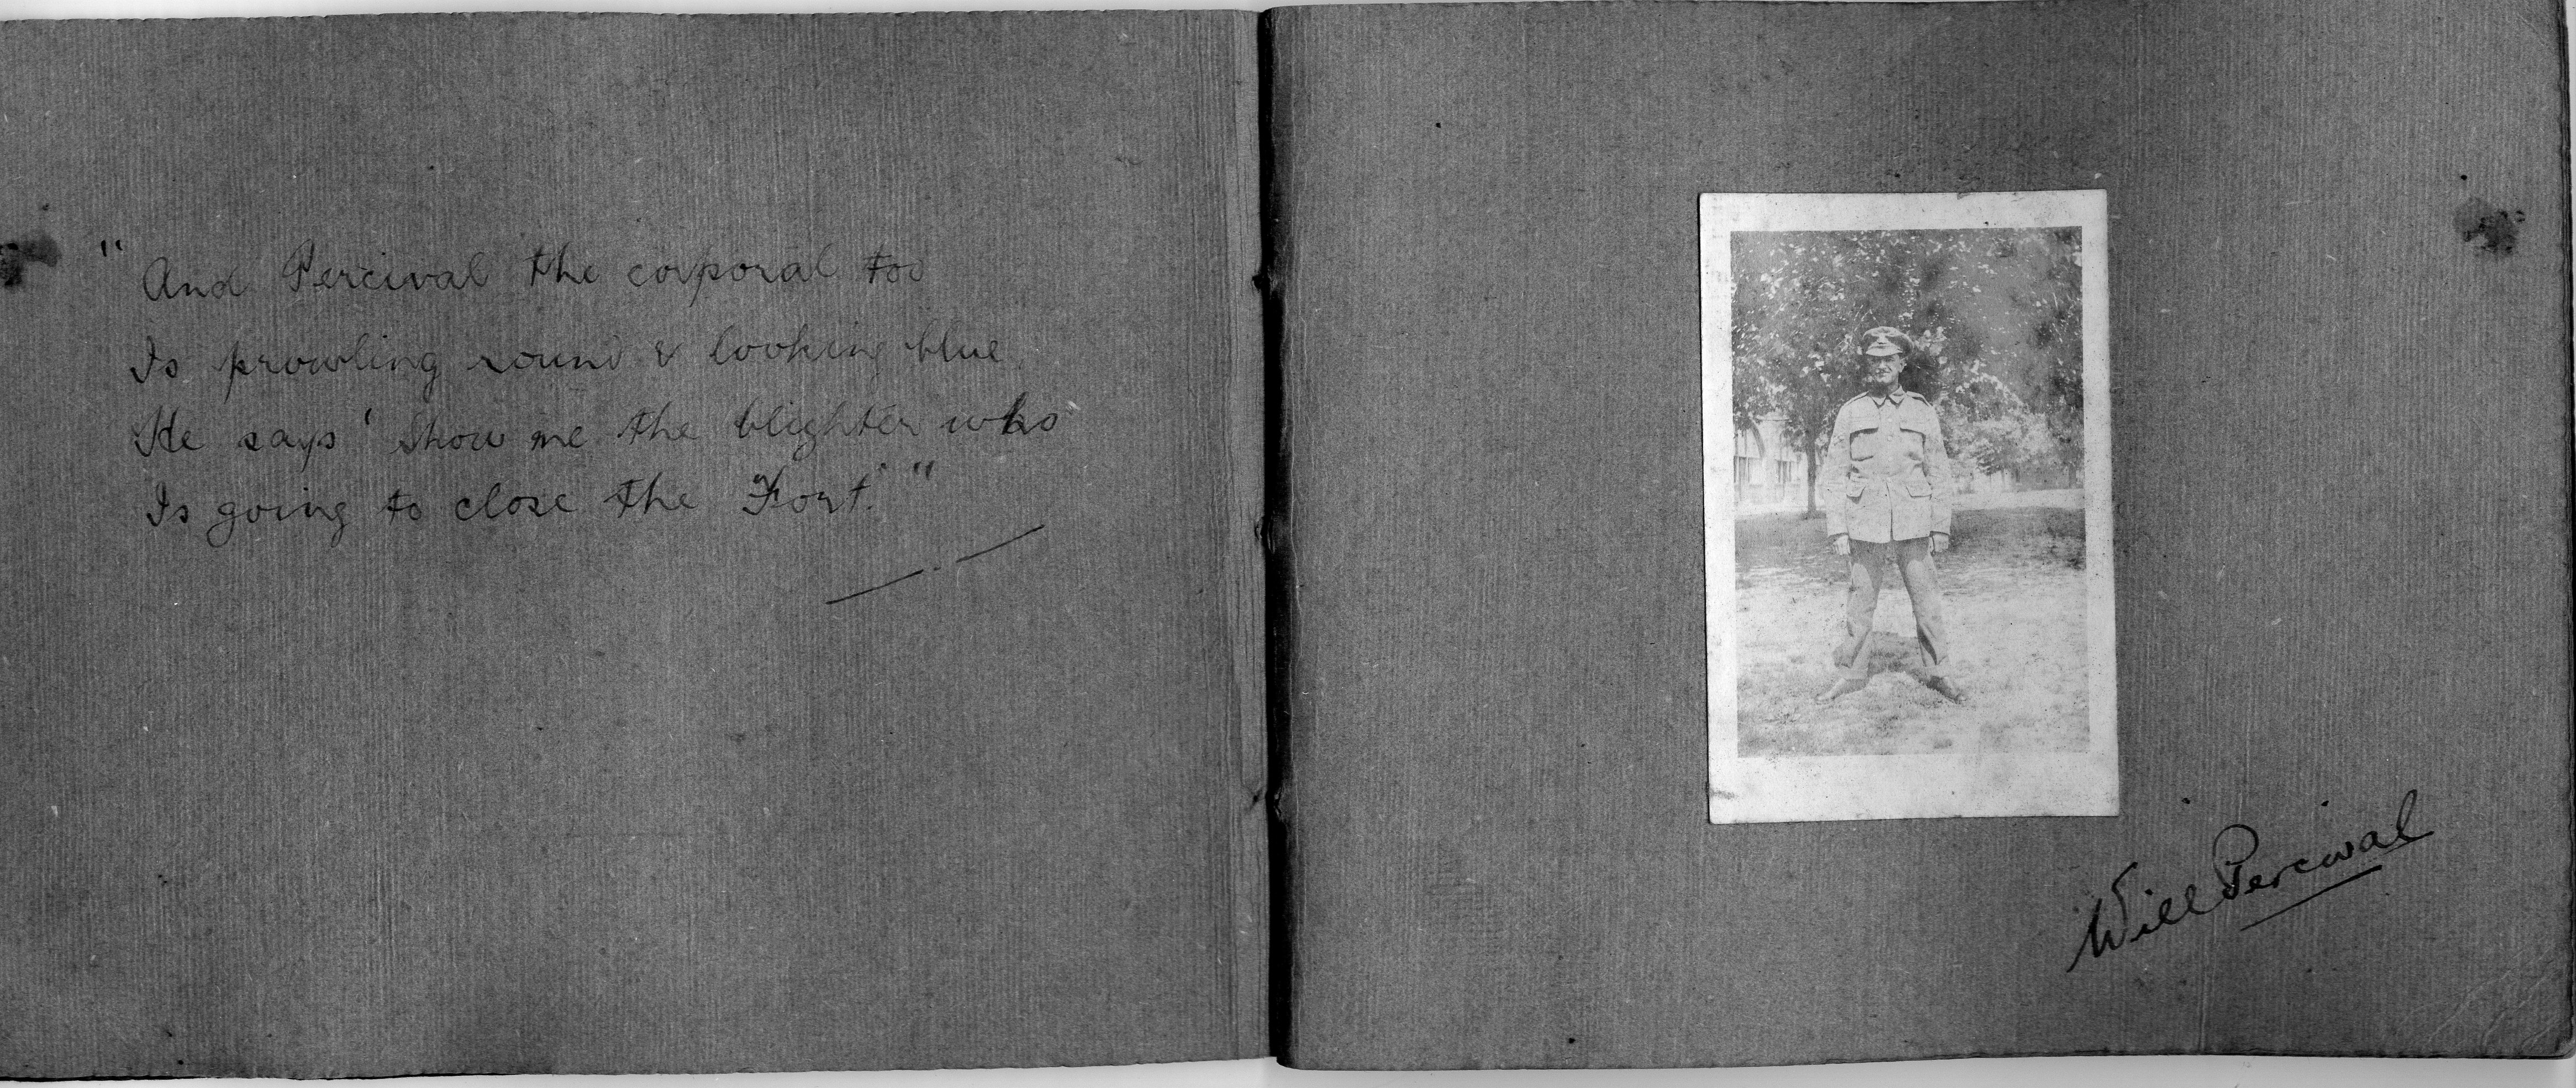 " And Percival the corporal too
Is prowling round & looking blue
He says ' Show me the blighter who
Is going to close the Fort.' "
Will Percival